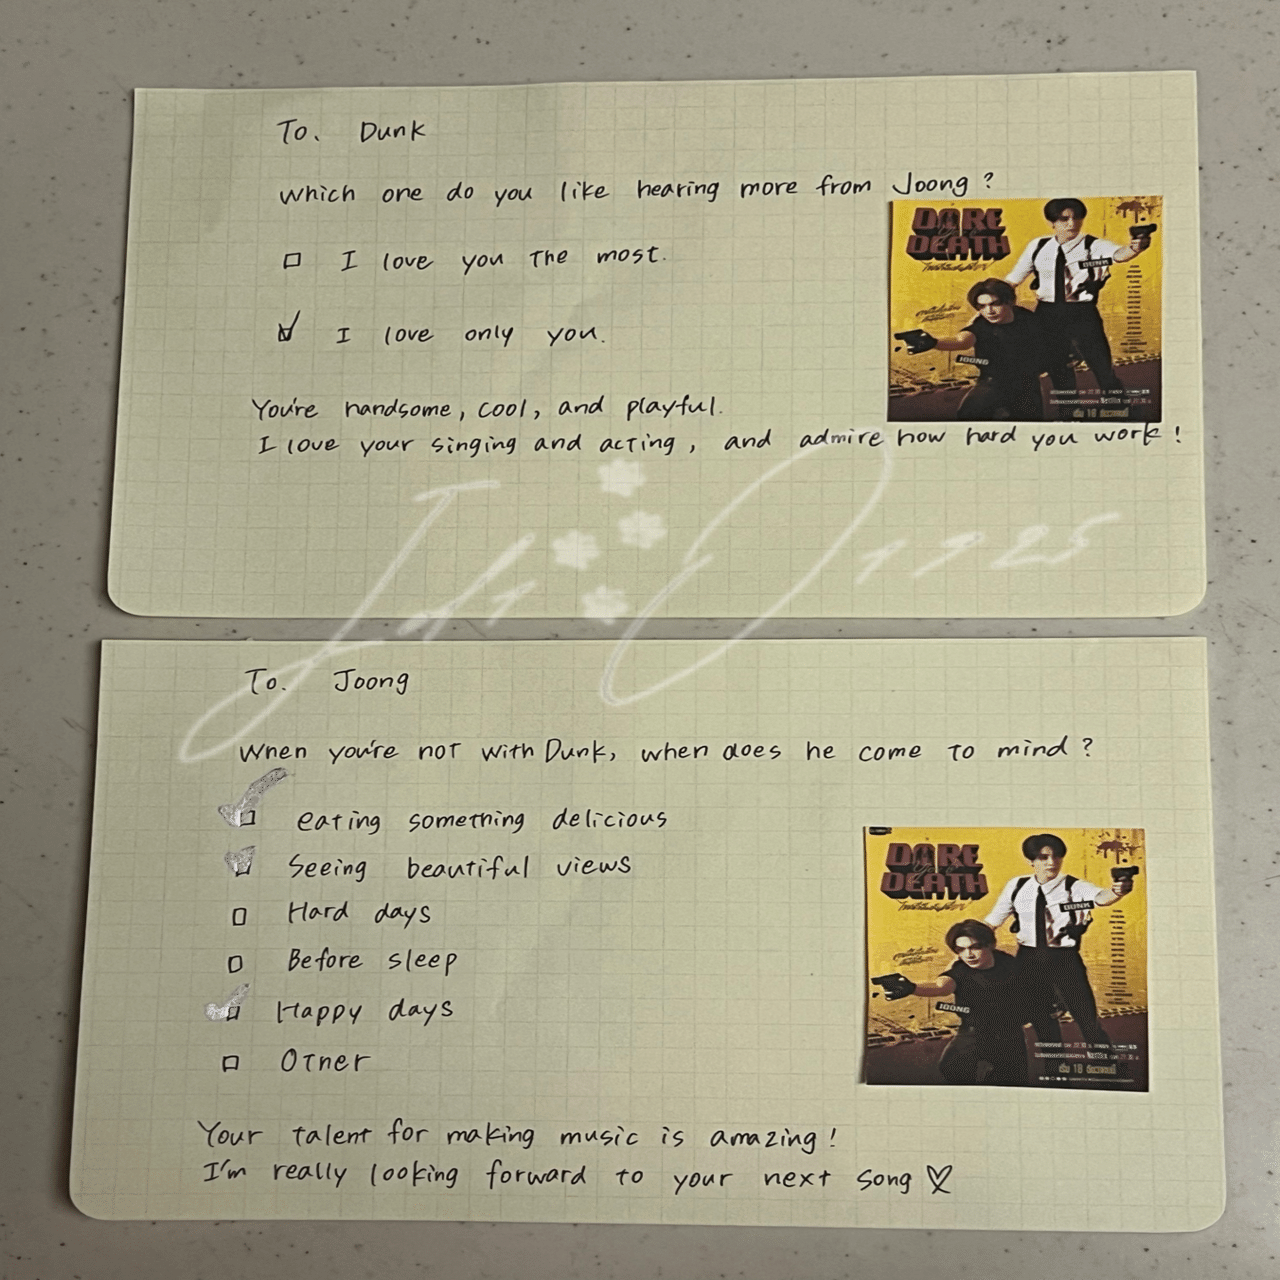 To. Dunk
Which one do you like hearing more from Joong?
I love you the most.
I love only you.
You're handsome, cool, and playful.
I love your singing and acting, and admire how hard you work!
DARE
DEATH
DUNK
JOONG
Netflix
To. Joong
When you're not with Dunk, when does he come to mind?
eating something delicious
Seeing beautiful views
Hard days
Before sleep
Happy days
Other
Your talent for making music is amazing!
I'm really looking forward to your next song ♡
DARE
DEATH
DUNK
JOONG
Netflix